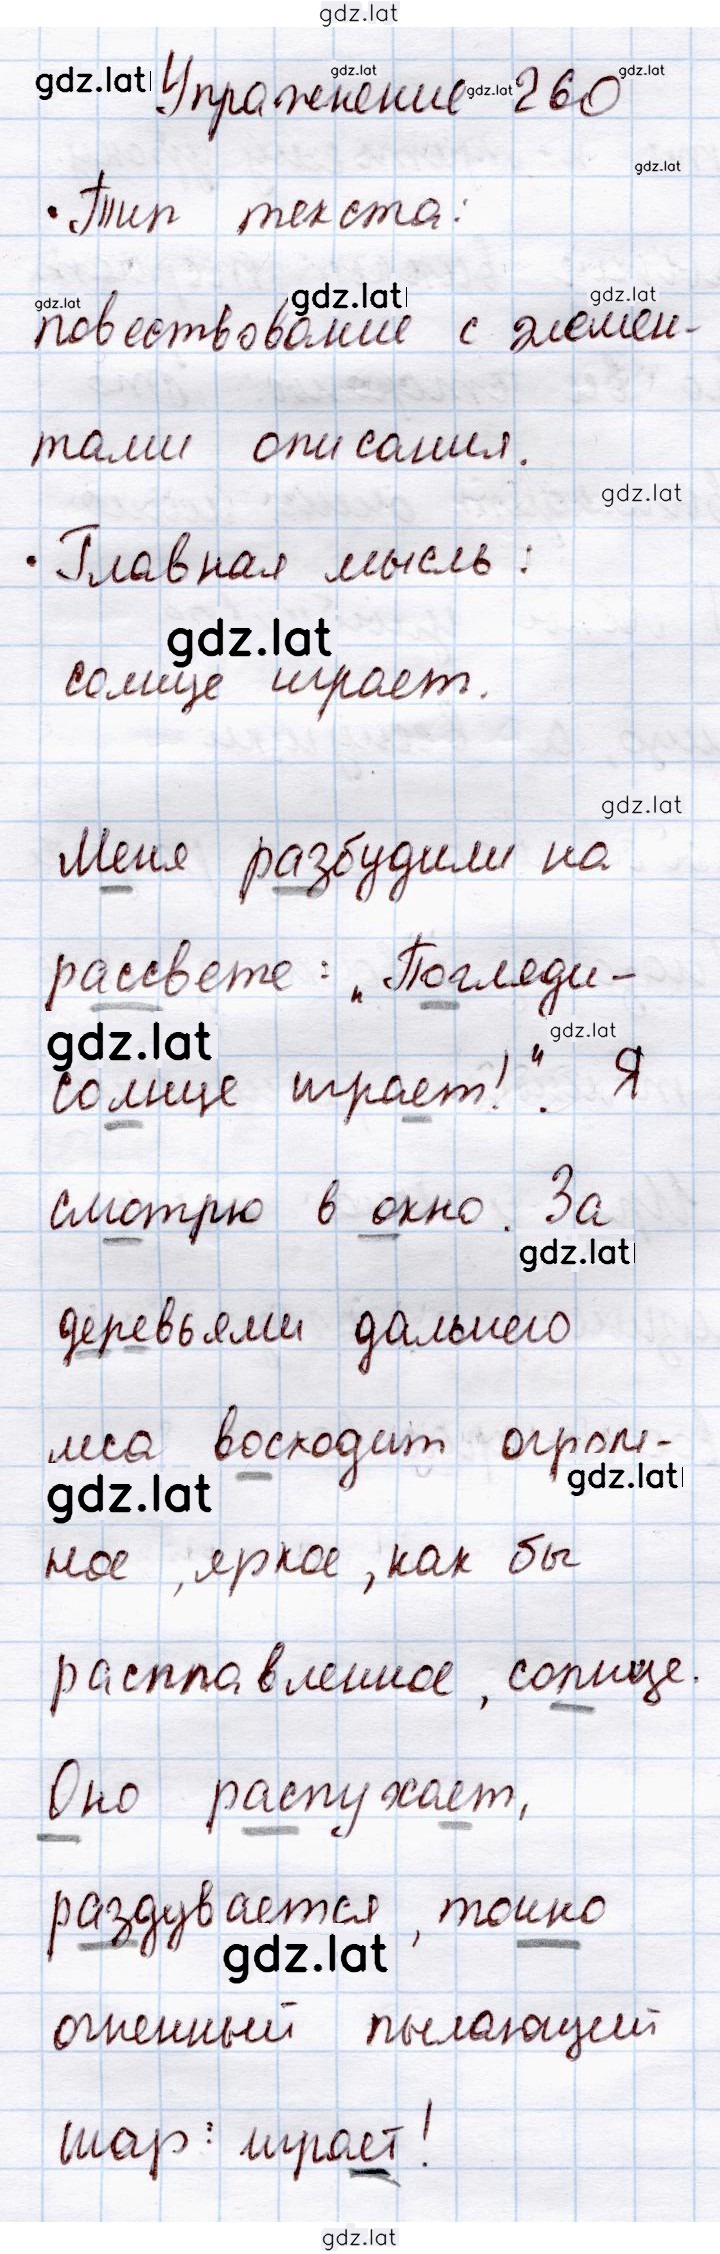 gdz.lat
gdz.lat gdz.lat gdz.lat
Упражнение gdz.lat 260
gdz.lat
• Тип текста:
gdz.lat gdz.lat gdz.lat
повествование с элемен-
тами описания.
gdz.lat
• Главная мысль:
gdz.lat
солнце играет.
gdz.lat
Меня разбудили на
рассвете: „Погляди-
gdz.lat gdz.lat
солнце играет!“. Я
смотрю в окно. За
gdz.lat
деревьями дальнего
леса восходит огром-
gdz.lat gdz.lat
ное, яркое, как бы
расплавленное, солнце.
Оно распухает,
раздувается, точно
gdz.lat
огненный пылающий
шар: играет!
gdz.lat